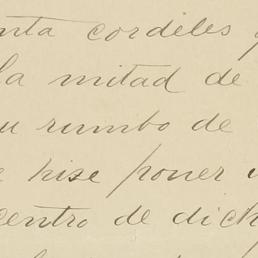 nta cordeles
la mitad de
u rumbo de
e hise poner
centro de dich